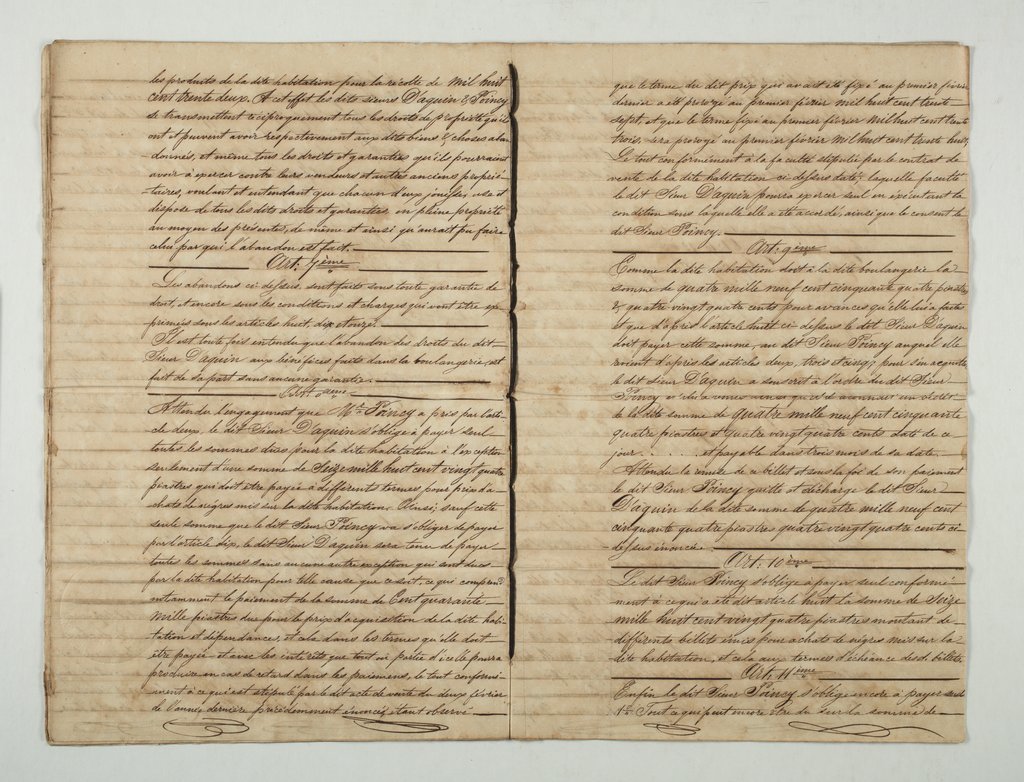 les produits de la dite habitation pour la récolte de Mil huit
cent trente deux. A cet effet les dits sieurs D'aquin & Poincy
se transmettent réciproquement tous les droits de propriété qu'ils
ont et peuvent avoir respectivement aux dits biens & choses aban
donnés, et même tous les droits et garanties qu'ils pourraient
avoir à exercer contre leurs vendeurs et autres anciens proprié-
taires, voulant et entendant que chacun d'eux jouisse, use et
dispose de tous les dits droits et garanties en pleine propriété
au moyen des présentes, de même et ainsi qu'aurait pu faire
celui par qui l'abandon est fait.
Art: 7ème
Les abandons ci-dessus sont faits sous toute garantie de
droit, et encore sous les conditions et charges qui vont être ex
primées sous les articles huit, dix et onze.
Il est toute fois entendu que l'abandon des droits du dit
Sieur D'aquin aux bénéfices faits dans la boulangerie, est
fait de sa part sans aucune garantie.
Art: 8ème
Attendu l'engagement que Mr. Poincy a pris par l'arti
cle deux, le dit Sieur D'aquin s'oblige à payer seul
toutes les sommes dües par la dite habitation à l'exception
seulement d'une somme de Seize mille huit cent vingt quatre
piastres qui doit être payée à différents termes pour prix d'a
chats de nègres mis sur la dite habitation. Ainsi, sauf cette
seule somme que le dit Sieur Poincy va s'obliger de payer
par l'article dix, le dit Sieur D'aquin sera tenu de payer
toutes les sommes sans aucune autre exception qui sont dues
par la dite habitation pour telle cause que ce soit, ce qui comprend
notamment le paiement de la somme de Cent quarante
mille piastres due pour le prix d'acquisition de la dite habi-
tation et dépendances, et cela dans les termes qu'elle doit
être payée et avec les intérêts que tout ou partie d'icelle pourra
produire en cas de retard dans les paiemens, le tout conformé-
ment à ce qui est stipulé par le dit acte de vente du deux février
de l'année dernière précédemment énoncé; étant observé
que le terme du dit prix qui avait été fixé au premier février
dernier a été prorogé au premier février mil huit cent trente
sept, et que le terme fixé au premier février mil huit cent trente
trois, sera prorogé au premier février Mil huit cent trente huit,
Le tout conformément à la faculté stipulée par le contrat de
vente de la dite habitation ci-dessus daté; laquelle faculté
le dit Sieur D'aquin pourra exercer seul en exécutant la
condition sous laquelle elle a été accordé, ainsi que le consent le
dit Sieur Poincy.
Art: 9ème
Comme la dite habitation doit à la dite boulangerie la
somme de quatre mille neuf cent cinquante quatre piastres
& quatre vingt quatre cents pour avances qu'elle lui a faites
et que d'après l'article huit ci-dessus le dit Sieur D'aquin
doit payer cette somme, au dit Sieur Poincy auquel elle
revient d'après les articles deux, trois et cinq; pour s'en acquitter
le dit sieur D'aquin a souscrit à l'ordre du dit Sieur
Poincy et lui a remis ainsi qu'il le reconnait un billet
de la dite somme de quatre mille neuf cent cinquante
quatre piastres et quatre vingt quatre cents daté de ce
jour . . . . . . . et payable dans trois mois de sa date.
Attendu la remise de ce billet et sous la foi de son paiement
le dit Sieur Poincy quitte et décharge le dit Sieur
D'aquin de la dite somme de quatre mille neuf cent
cinquante quatre piastres quatre vingt quatre cents ci-
dessus énoncée.
Art: 10ème
Le dit Sieur Poincy s'oblige à payer seul conformé-
ment à ce qui a été dit article huit la somme de Seize
mille huit cent vingt quatre piastres montant de
différents billets émis pour achats de nègres mis sur la
dite habitation, et cela aux termes d'échéance desd. billets.
Art. 11ème
Enfin le dit Sieur Poincy s'oblige encore à payer seul
1º. Tout ce qui peut encore être dû sur la somme de